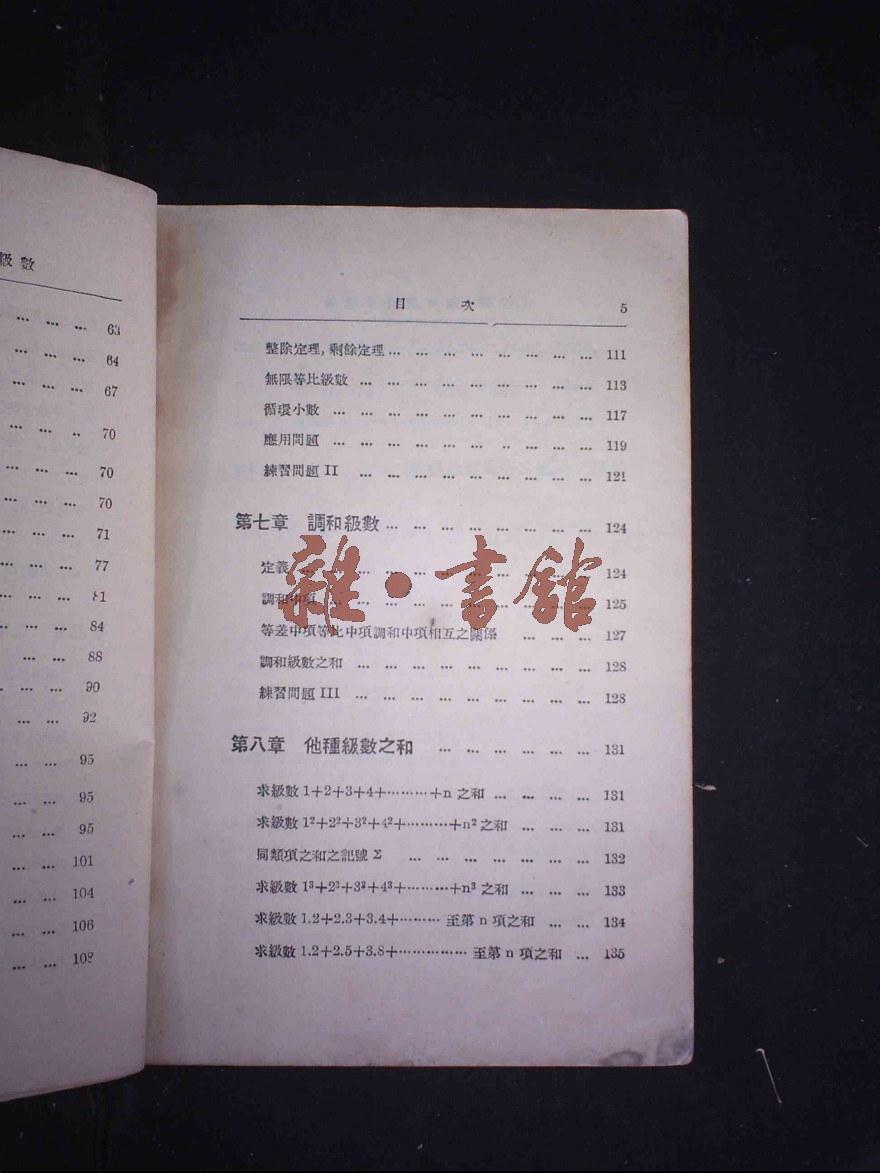 級數
... ... ... 63
... ... ... 64
... ... ... 67
... ... .. 70
... ... ... 70
... ... ... 70
... ... ... 71
... ... ... 77
... ... ... 81
... ... ... 84
... ... ... 88
... ... ... 90
... ... ... 92
... ... 95
... ... 95
... ... 95
... ... 101
... ... 104
... ... 106
... ... 108
目 次 5
整除定理, 剩餘定理 ... ... ... ... ... ... ... ... 111
無限等比級數 ... ... ... ... ... ... ... ... ... 113
循環小數 ... ... ... ... ... ... ... ... ... ... 117
應用問題 ... ... ... ... ... ... .. ... ... ... 119
練習問題 II ... ... ... ... ... ... ... ... ... 121
第七章 調和級數 ... ... ... ... ... ... ... ... 124
定義 ... ... ... ... ... ... ... ... ... ... ... 124
調和中項 ... ... ... ... ... ... ... ... ... ... 125
等差中項等比中項調和中項相互之關係 ... ... ... 127
調和級數之和 ... ... ... ... ... ... ... ... ... 128
練習問題 III ... ... ... ... ... ... ... ... ... 128
第八章 他種級數之和 ... ... ... ... ... ... 131
求級數 1+2+3+4+………+n 之和 ... ... ... ... 131
求級數 1²+2²+3²+4²+………+n² 之和 ... ... ... 131
同類項之和之記號 Σ ... ... ... ... ... ... ... 132
求級數 1³+2³+3³+4³+………+n³ 之和 ... ... ... 133
求級數 1.2+2.3+3.4+……… 至第 n 項之和 ... ... 134
求級數 1.2+2.5+3.8+…………… 至第 n 項之和 ... 135
雜·書館